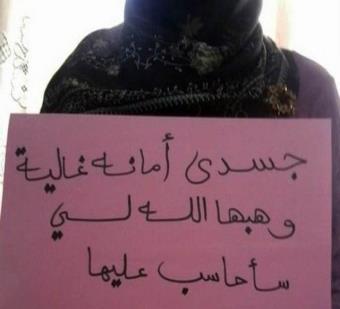 جسدى أمانه غالية
وهبها الله لي
سأحاسب عليها